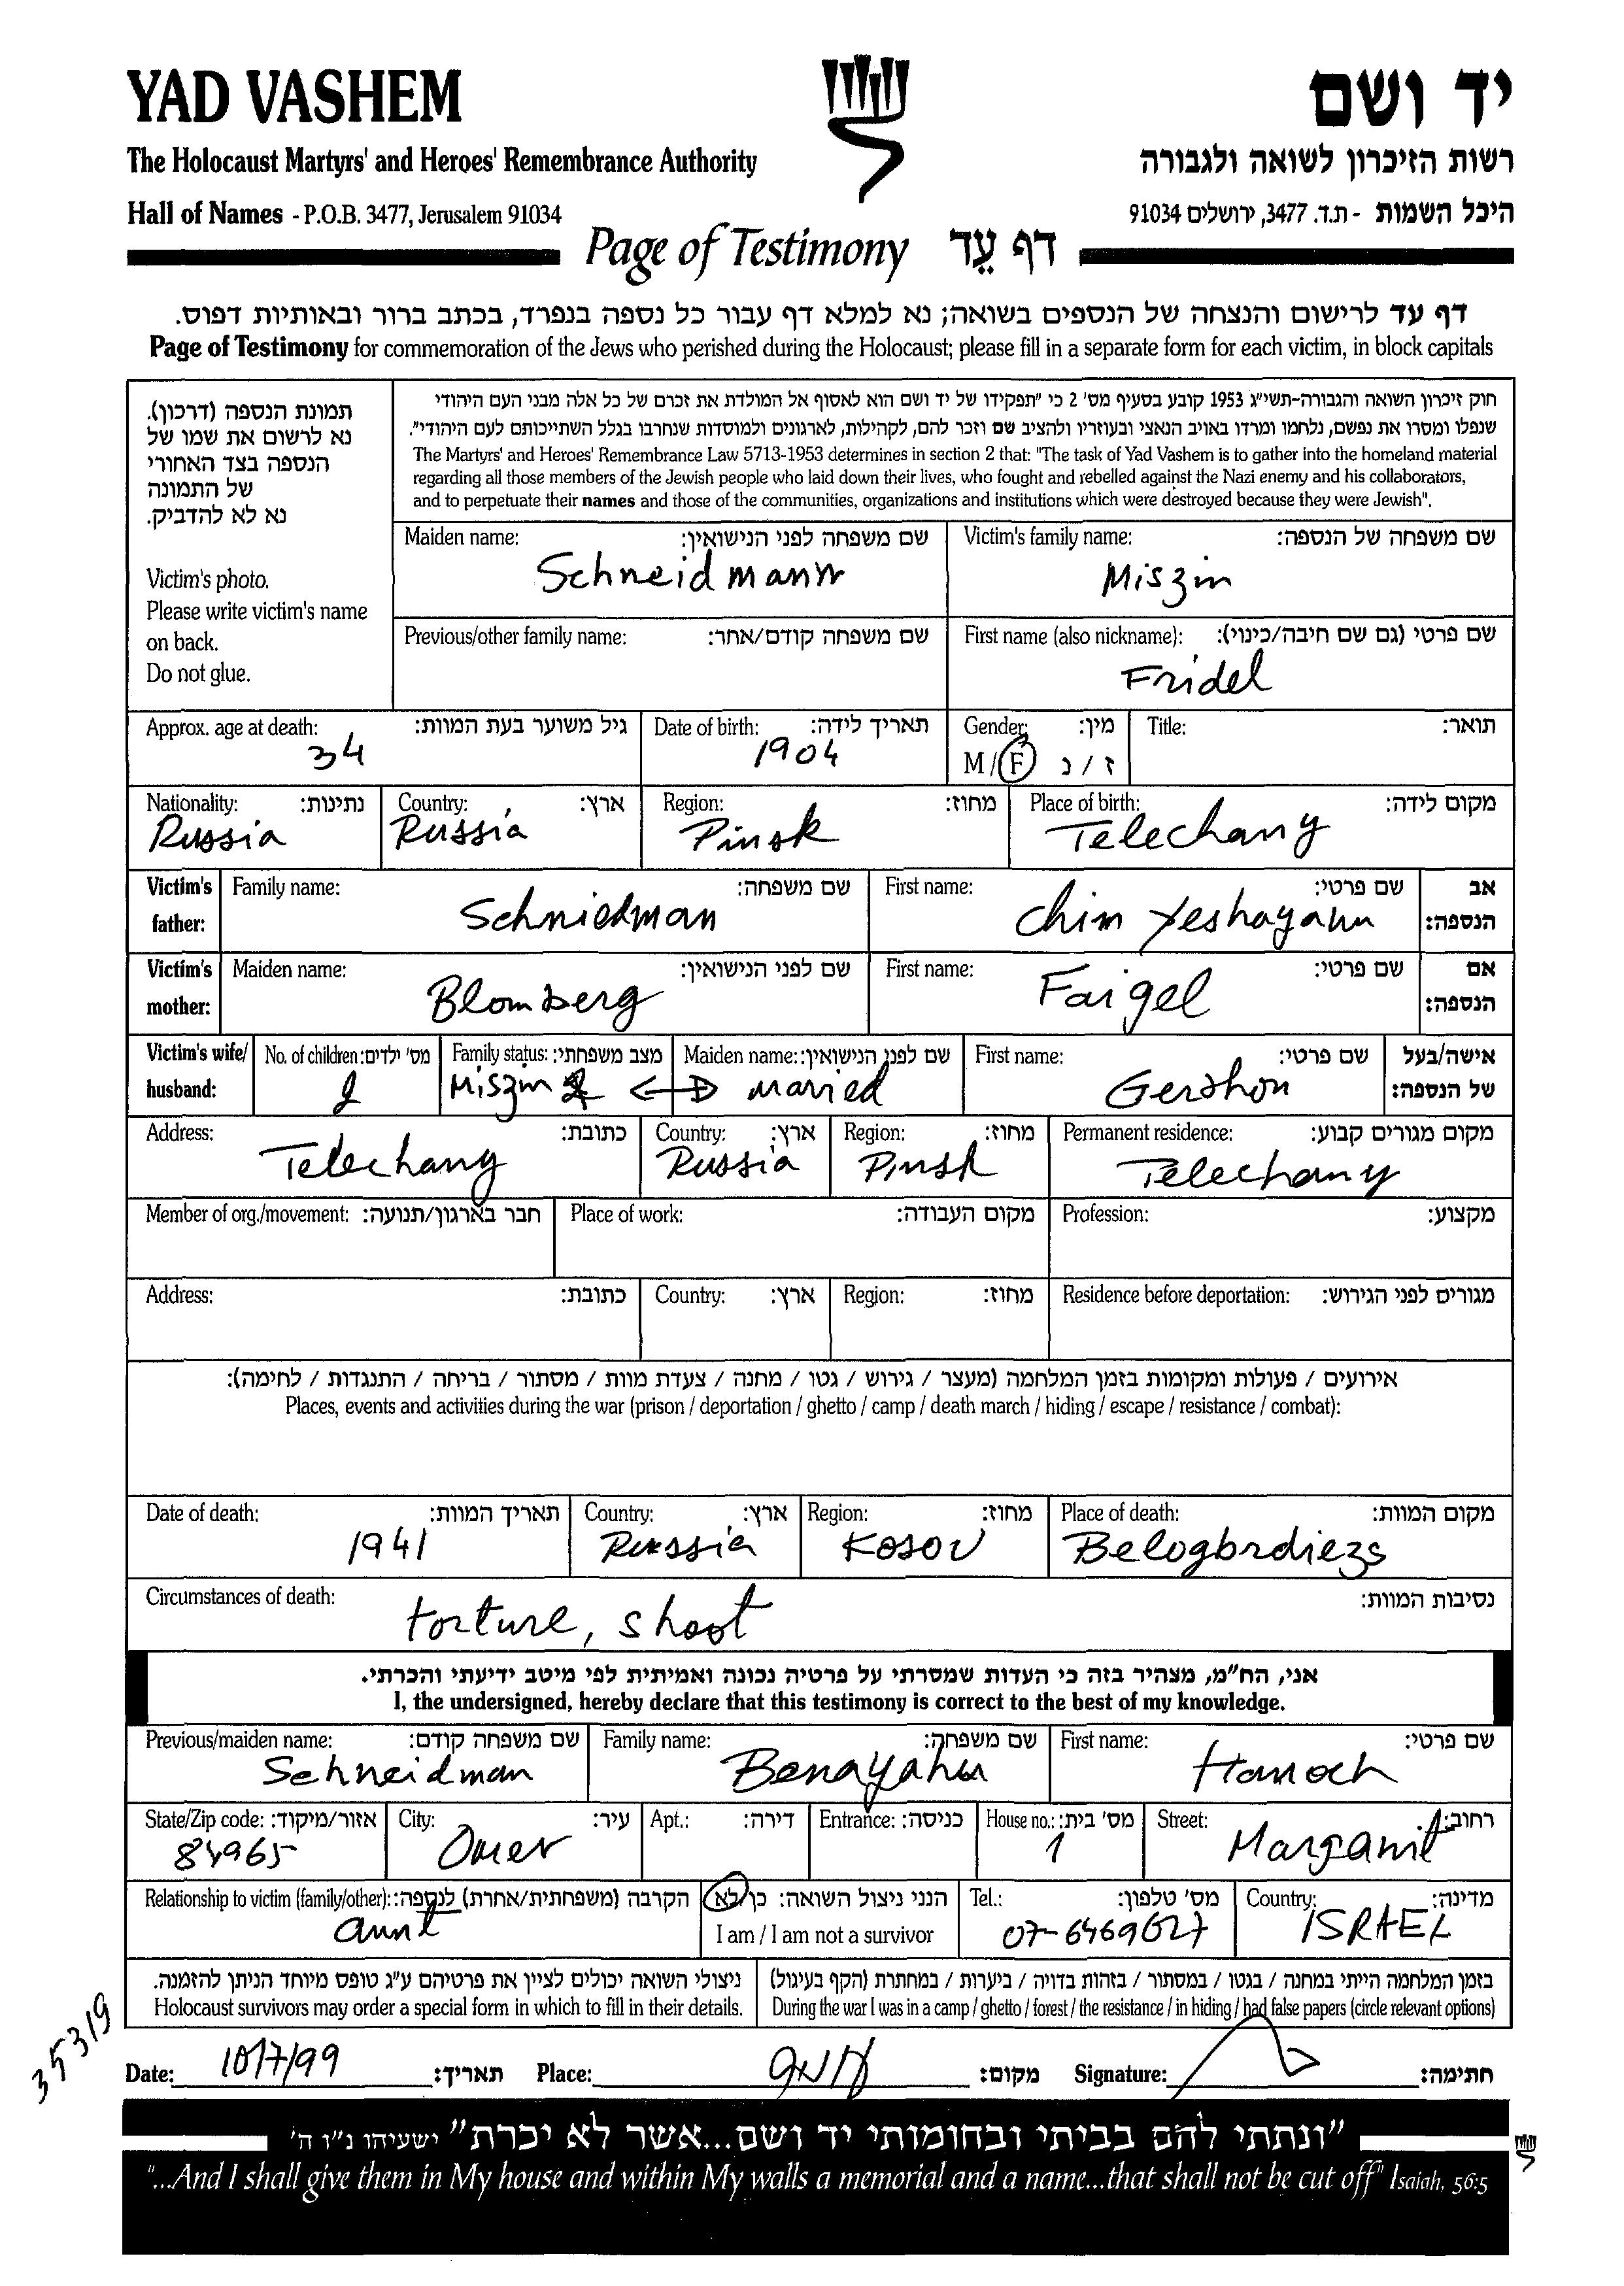 YAD VASHEM
יד ושם
The Holocaust Martyrs' and Heroes' Remembrance Authority
רשות הזיכרון לשואה ולגבורה
Hall of Names - P.O.B. 3477, Jerusalem 91034
היכל השמות - ת.ד. 3477, ירושלים 91034
Page of Testimony דף עֵד
דף עד לרישום והנצחה של הנספים בשואה; נא למלא דף עבור כל נספה בנפרד, בכתב ברור ובאותיות דפוס.
Page of Testimony for commemoration of the Jews who perished during the Holocaust; please fill in a separate form for each victim, in block capitals
תמונת הנספה (דרכון).
נא לרשום את שמו של
הנספה בצד האחורי
של התמונה
נא לא להדביק.
Victim's photo.
Please write victim's name
on back.
Do not glue.
חוק זיכרון השואה והגבורה-תשי"ג 1953 קובע בסעיף מס' 2 כי "תפקידו של יד ושם הוא לאסוף אל המולדת את זכרם של כל אלה מבני העם היהודי
שנפלו ומסרו את נפשם, נלחמו ומרדו באויב הנאצי ובעוזריו ולהציב שם וזכר להם, לקהילות, לארגונים ולמוסדות שנחרבו בגלל השתייכותם לעם היהודי".
The Martyrs' and Heroes' Remembrance Law 5713-1953 determines in section 2 that: "The task of Yad Vashem is to gather into the homeland material
regarding all those members of the Jewish people who laid down their lives, who fought and rebelled against the Nazi enemy and his collaborators,
and to perpetuate their names and those of the communities, organizations and institutions which were destroyed because they were Jewish".
Maiden name: שם משפחה לפני הנישואין:
Schneidmann
Victim's family name: שם משפחה של הנספה:
Miszin
Previous/other family name: שם משפחה קודם/אחר:
First name (also nickname): שם פרטי (גם שם חיבה/כינוי):
Fridel
Approx. age at death: גיל משוער בעת המוות:
34
Date of birth: תאריך לידה:
1904
Gender: מין:
M / F ז / נ
Title: תואר:
Nationality: נתינות:
Russia
Country: ארץ:
Russia
Region: מחוז:
Pinsk
Place of birth: מקום לידה:
Telechany
Victim's father:
Family name: שם משפחה:
Schniedman
First name: שם פרטי:
Chim Yeshayahu
אב הנספה:
Victim's mother:
Maiden name: שם לפני הנישואין:
Blomberg
First name: שם פרטי:
Faigel
אם הנספה:
Victim's wife/ husband:
No. of children: מס' ילדים:
2
Family status: מצב משפחתי:
Miszin
Maiden name: שם לפני הנישואין:
maried
First name: שם פרטי:
Gershon
אישה/בעל של הנספה:
Address: כתובת:
Telechany
Country: ארץ:
Russia
Region: מחוז:
Pinsk
Permanent residence: מקום מגורים קבוע:
Telechany
Member of org./movement: חבר בארגון/תנועה:
Place of work: מקום העבודה:
Profession: מקצוע:
Address: כתובת:
Country: ארץ:
Region: מחוז:
Residence before deportation: מגורים לפני הגירוש:
אירועים / פעולות ומקומות בזמן המלחמה (מעצר / גירוש / גטו / מחנה / צעדת מוות / מסתור / בריחה / התנגדות / לחימה):
Places, events and activities during the war (prison / deportation / ghetto / camp / death march / hiding / escape / resistance / combat):
Date of death: תאריך המוות:
1941
Country: ארץ:
Russia
Region: מחוז:
Kosov
Place of death: מקום המוות:
Circumstances of death: נסיבות המוות:
torture, shoot
אני, הח"מ, מצהיר בזה כי העדות שמסרתי על פרטיה נכונה ואמיתית לפי מיטב ידיעתי והכרתי.
I, the undersigned, hereby declare that this testimony is correct to the best of my knowledge.
Previous/maiden name: שם משפחה קודם:
Schneidman
Family name: שם משפחה:
Benayahu
First name: שם פרטי:
Hanoch
State/Zip code: אזור/מיקוד:
84965
City: עיר:
Omer
Apt.: דירה:
Entrance: כניסה:
House no.: מס' בית:
1
Street: רחוב:
Marganit
Relationship to victim (family/other): הקרבה (משפחתית/אחרת) לנספה:
aunt
הנני ניצול השואה: כן/לא
I am / I am not a survivor
Tel.: מס' טלפון:
07-6469627
Country: מדינה:
ISRAEL
ניצולי השואה יכולים לציין את פרטיהם ע"ג טופס מיוחד הניתן להזמנה.
Holocaust survivors may order a special form in which to fill in their details.
בזמן המלחמה הייתי במחנה / בגטו / במסתור / בזהות בדויה / ביערות / במחתרת (הקף בעיגול)
During the war I was in a camp / ghetto / forest / the resistance / in hiding / had false papers (circle relevant options)
35319
Date: 10/7/99 תאריך: Place: מקום: Signature: חתימה:
"ונתתי להם בביתי ובחומותי יד ושם...אשר לא יכרת" ישעיהו נ"ו ה'
"...And I shall give them in My house and within My walls a memorial and a name...that shall not be cut off" Isaiah, 56:5